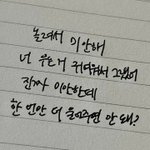 놀려서 미안해
너 우는 거 귀여워서 그랬어
진짜 미안한데
한 번만 더 울어주면 안 돼?